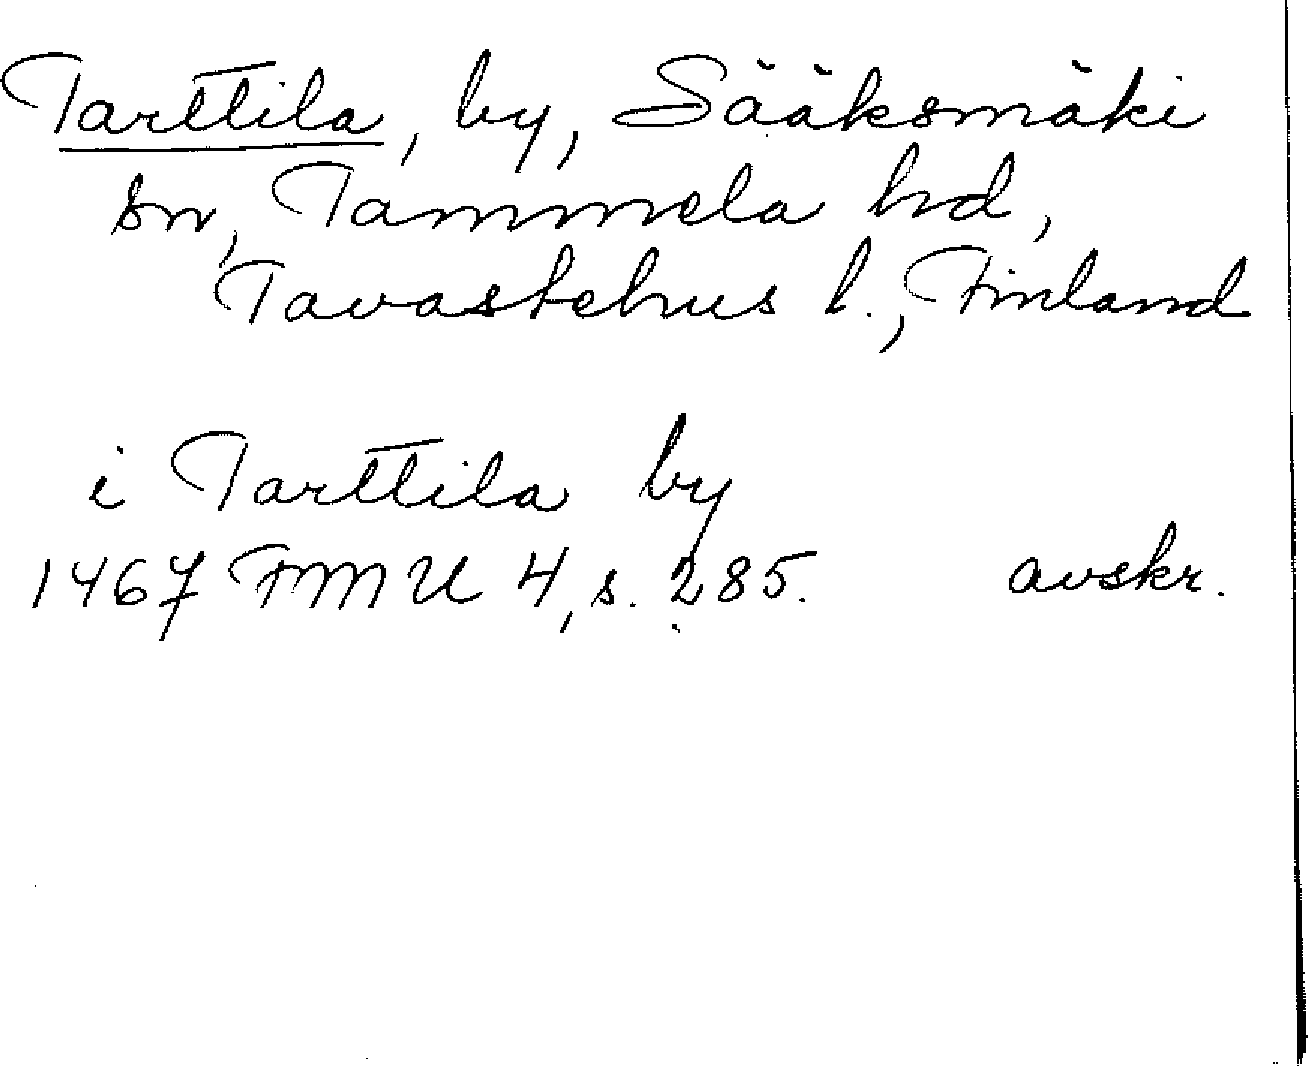 Tarttila, by, Sääksmäki
sn, Tammela hd,
Tavastehus l., Finland
i Tarttila by
1467 FMU 4, s. 285. avskr.